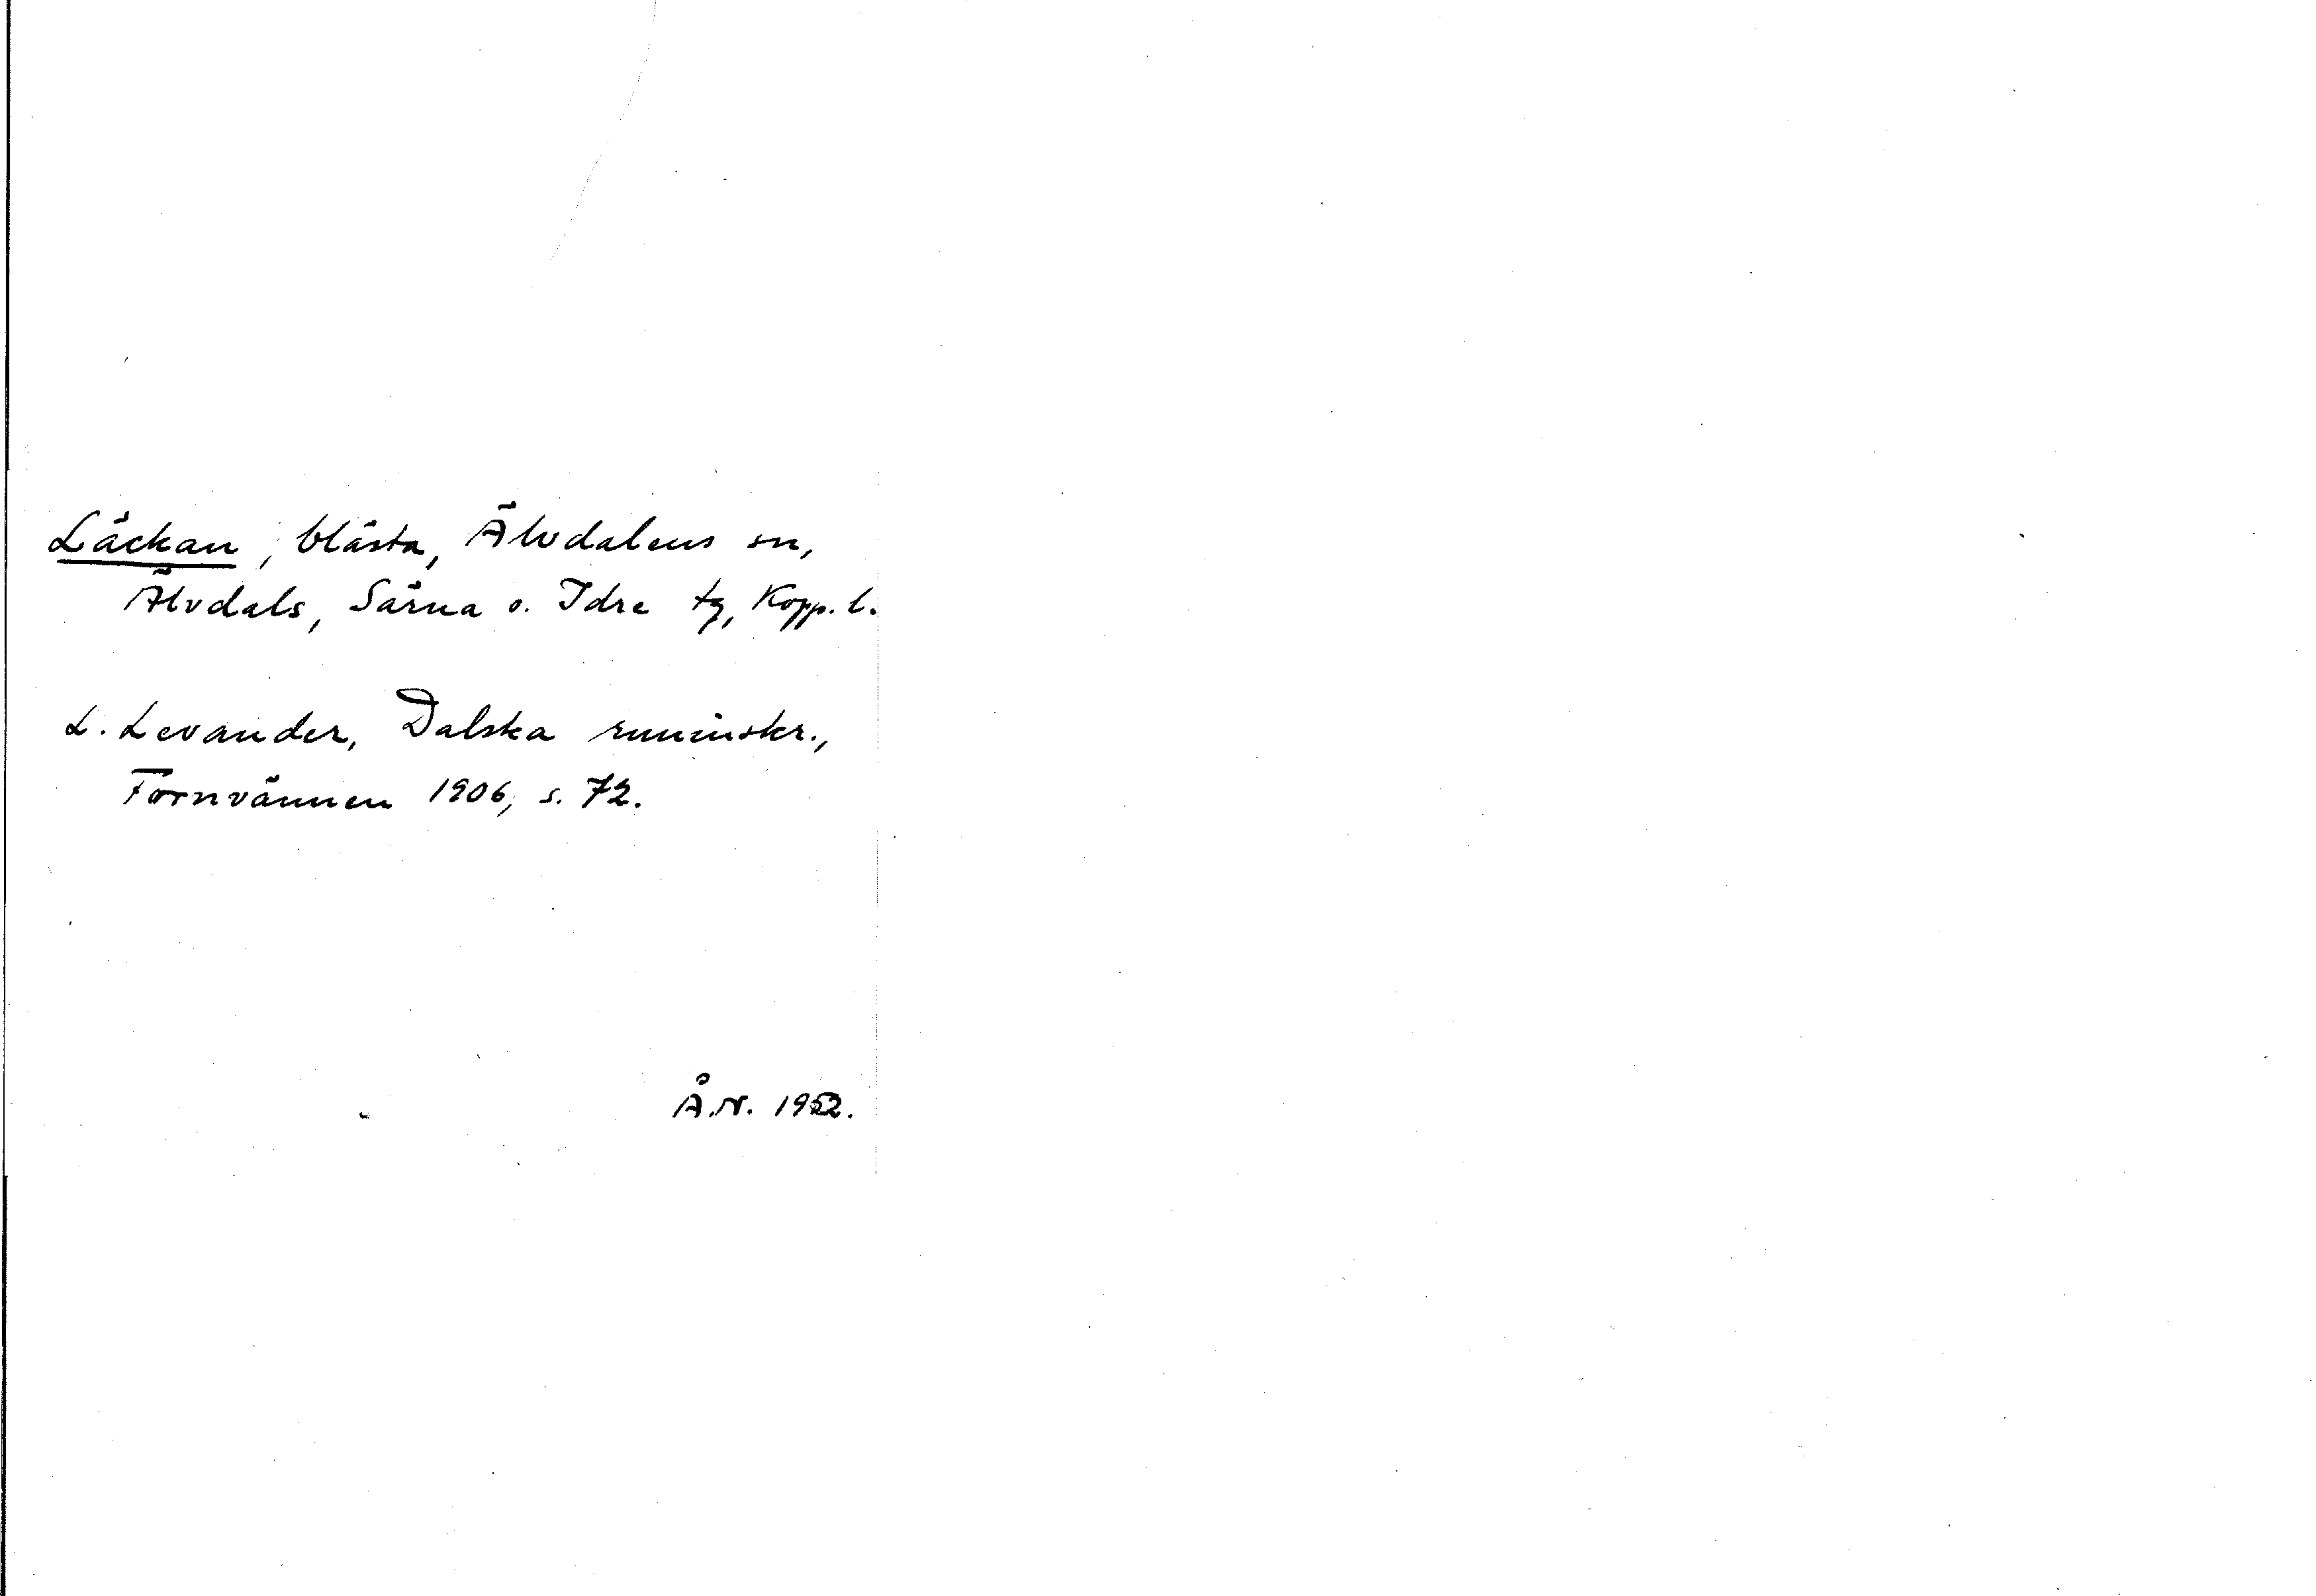 Läckan, blåsta, Älvdalens sn,
Älvdals, Särna o. Idre tg, Kopp. l.
L. Levander, Dalska runinskr.,
Fornvännen 1906, s. 72.
Å.N. 1952.